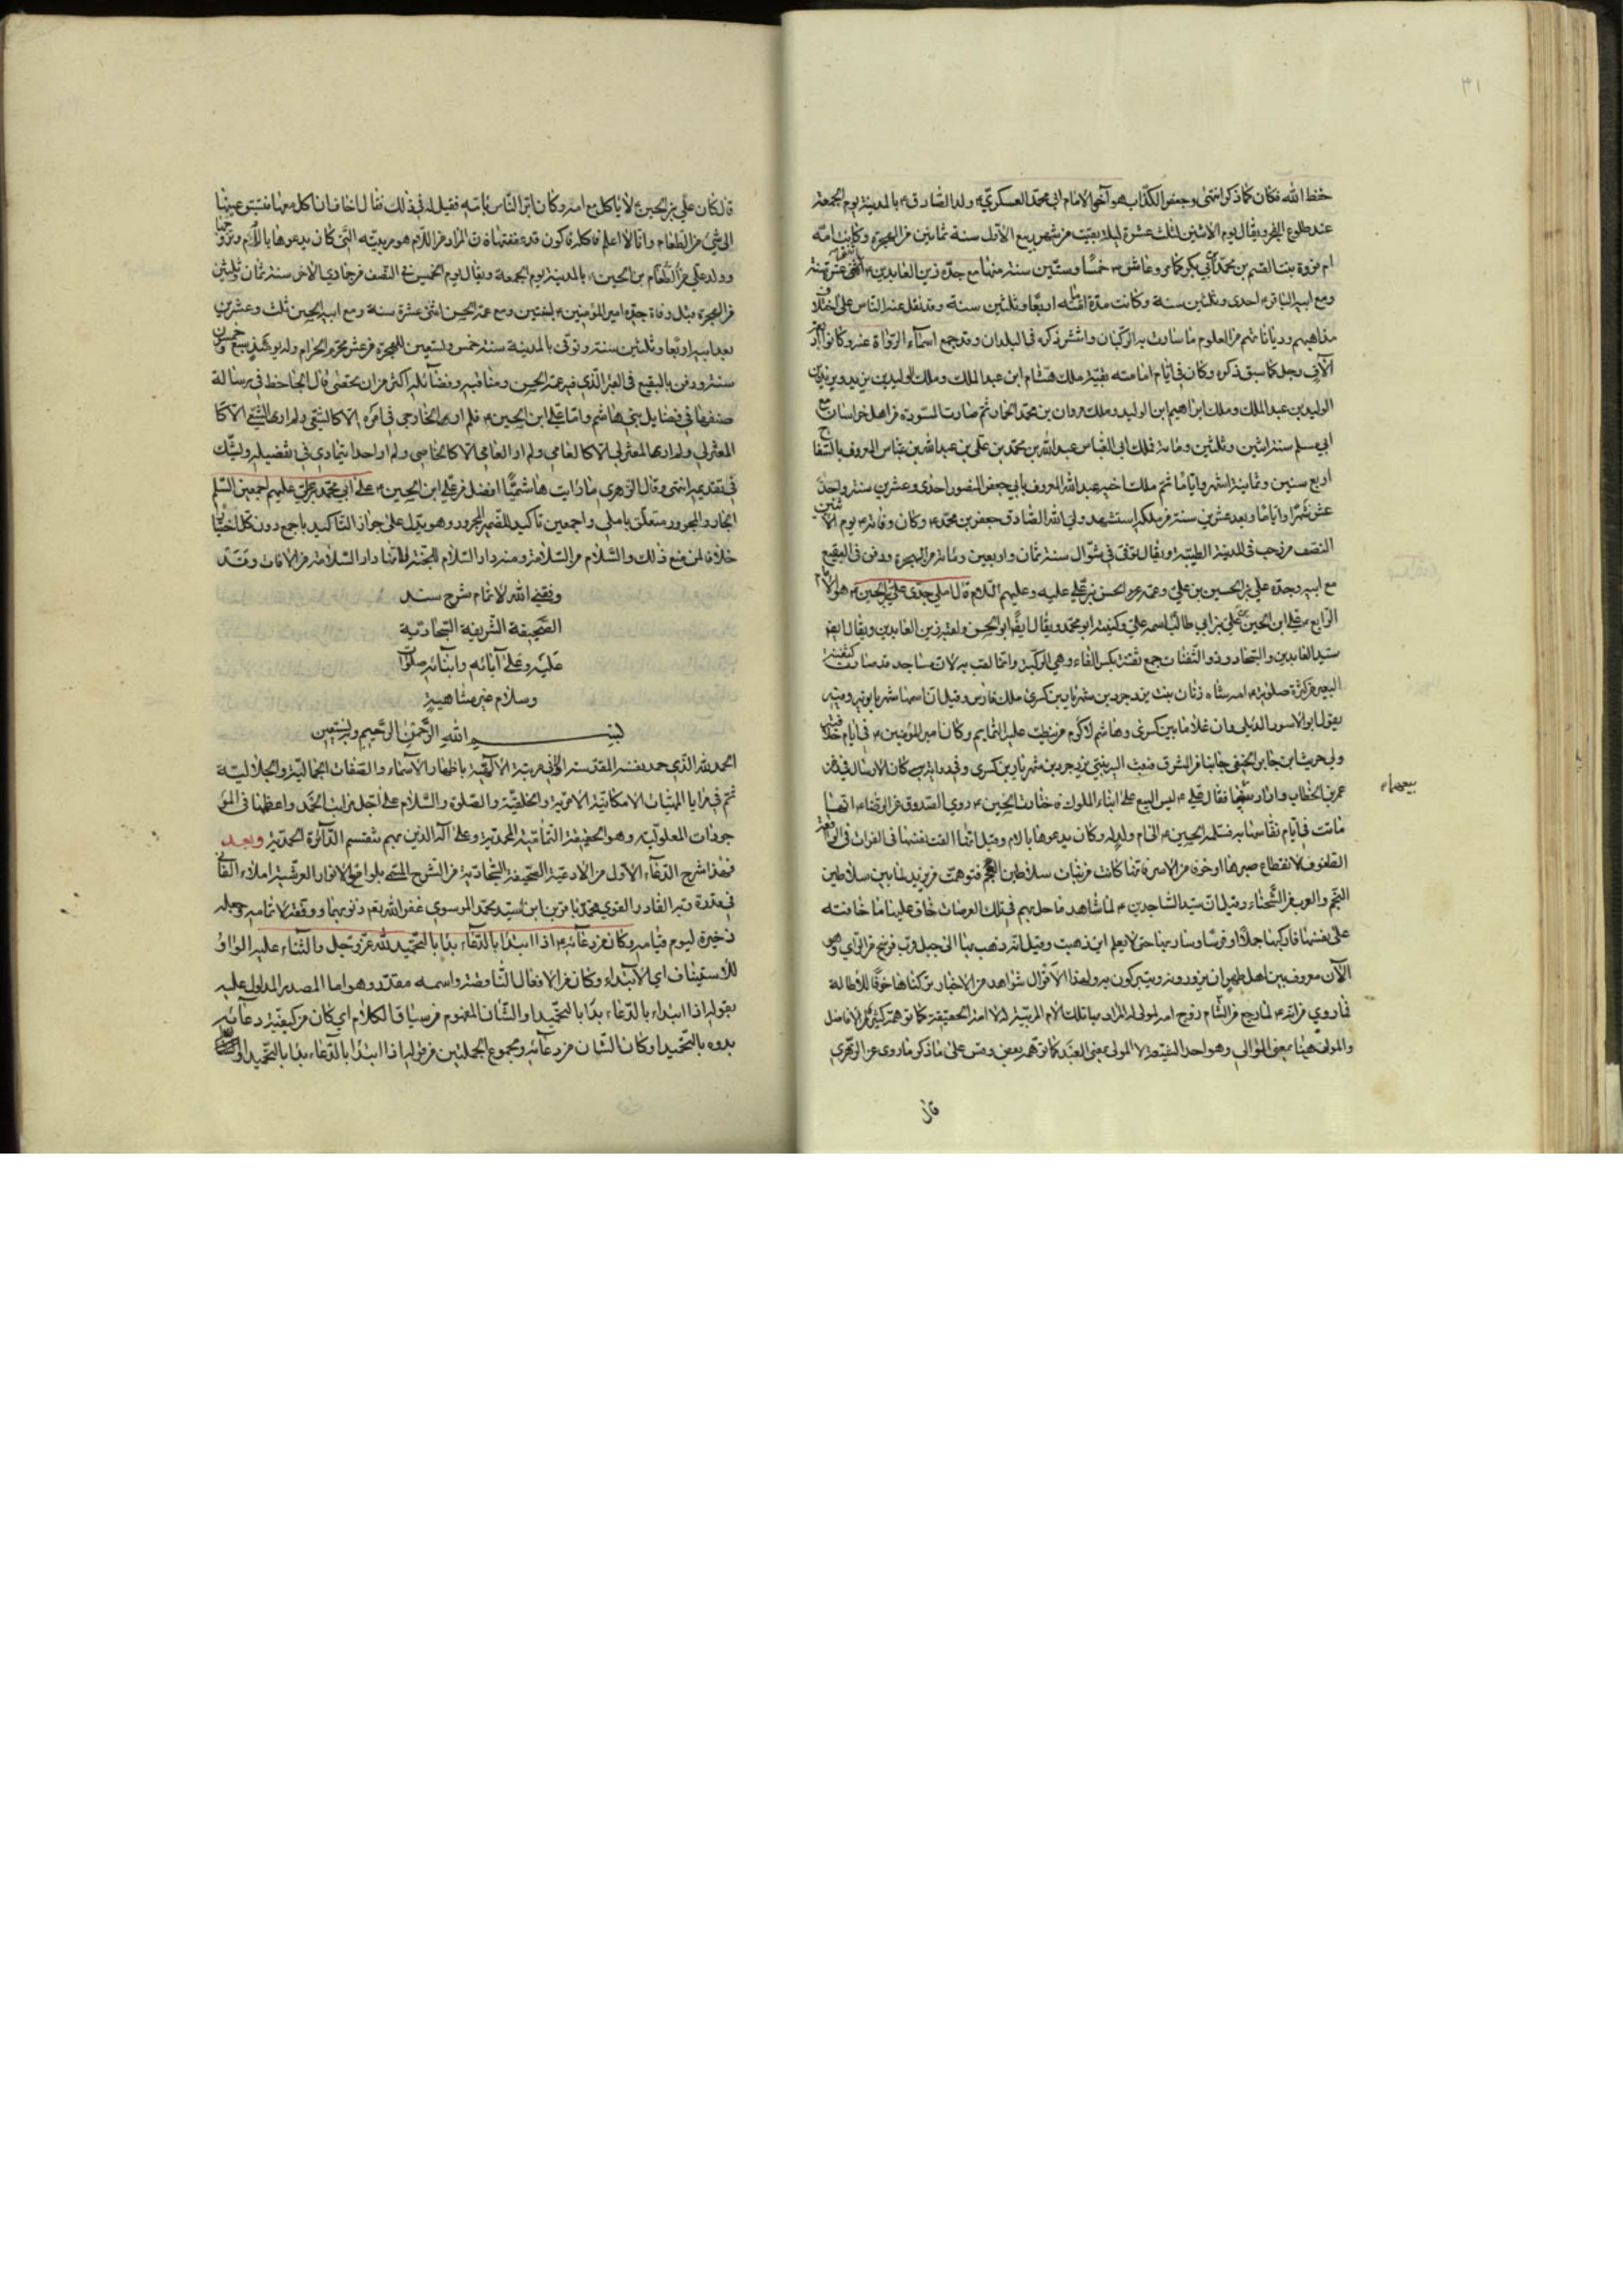 ٣١
حفظ الله فكان كما ذكر انتهى وجعفر الكذاب هو آخو الامام ابي محمد العسكري ولد الصادق ع بالمدينة يوم الجمعة
عند طلوع الفجر ويقال يوم الاثنين لثلث عشرة ليلة بقيت من شهر ربيع الاول سنة ثمانين من الهجرة وكانت امه
ام فروة بنت القسم بن محمد بن ابي بكر كما مر وعاش ع خمسا وستين سنة منها مع جده زين العابدين ع اثنتى عشرة سنة
ومع ابيه الباقر ع احدى وثلثين سنة وكانت مدة امامته اربعا وثلثين سنة وقد نقل عنه الناس على اختلاف
مذاهبهم ودياناتهم من العلوم ما سارت به الركبان وانتشر ذكره في البلدان وقد جمع اسماء الرواة عنه وكانوا اربعة
آلاف رجل كما سبق ذكره وكان في ايام امامته بقية ملك هشام ابن عبد الملك وملك الوليد بن يزيد ويزيد بن
الوليد بن عبد الملك وملك ابراهيم ابن الوليد وملك مروان بن محمد الحمار ثم صارت المسودة من اهل خراسان مع
ابي مسلم سنة اثنتين وثلثين ومائة فملك ابو العباس عبد الله بن محمد بن علي بن عبد الله بن عباس المعروف بالسفاح
اربع سنين وثمانية اشهر واياما ثم ملك اخيه عبد الله المعروف بابي جعفر المنصور احدى وعشرين سنة واحد
عشر شهرا واياما وبعد عشر سنين من ملكه استشهد ولي الله الصادق جعفر بن محمد ع وكان وفاته ع يوم الاثنين
النصف من رجب في المدينة الطيبة ويقال توفى في شوال سنة ثمان واربعين ومائة من الهجرة ودفن في البقيع
مع ابيه وجده علي بن الحسين بن علي وعمه الحسن بن علي عليه وعليهم السلام قال املى جدي علي بن الحسين ع هو الامام
الرابع علي ابن الحسين بن علي بن ابي طالب اسمه علي وكنيته ابو محمد ويقال ايضا ابو الحسن ولقبه زين العابدين ويقال ايضا
سيد العابدين والسجاد وذو الثفنات جمع ثفنة بكسر الفاء وهي الركبة وانما لقب به لان مساجده قد صارت كثفنة
البعير من كثرة صلوته ع امه شاه زنان بنت يزدجرد بن شهريار بن كسرى ملك فارس وقيل ان اسمها شهربانويه وفيه
يقول ابو الاسود الدئلي وان غلاما بين كسرى وهاشم لاكرم من نيطت عليه التمايم وكان امير المؤمنين ع في ايام خلافته
ولي حريث ابن جابر الحنفي جانبا من المشرق فبعث اليه بنتي يزدجرد بن شهريار بن كسرى وفي رواية كان الارسال في زمن
عمر بن الخطاب واراد بيعها فقال علي ع ليس البيع على ابناء الملوك فاختارت الحسين ع روى الصدوق عن الرضا ع انها
بيعهاء
ماتت في ايام نفاسها به فسلمه الحسين ع الى ام ولد له وكان يدعوها بالام وقيل انها القت نفسها في الفرات في واقعة
الطفوف لانقطاع صبرها او خوفا من الاسر فانها كانت من بنات سلاطين العجم
العجم والعرب من الشحناء وقيل ان سيد الساجدين ع لما شاهد ما حل بهم في تلك العرصات خاف عليها ما خافته
على نفسها فاركبها جملا او فرسا وسار بها حتى لا يعلم اين ذهبت وقيل انه ذهب بها الى جبل قرب فرسخ من الري وهو
الآن معروف بين اهل طهران يزورونه ويتبركون به ولهذا الاقوال شواهد من الاخبار تركناها خوفا للاطالة
فما روي من انه ع لما رجع من الشام زوج امه لمولى له المراد بها تلك الام المربية له لا امه الحقيقية كما توهمه كثير من الافاضل
والمولى هيهنا بمعنى الموالي وهو احد الشيعة لا المولى بمعنى العبد كما توهمه بعض ونص على ما ذكر ما روى عن الزهري
قال
قال كان علي بن الحسين ع لا ياكل مع امه وكان ابر الناس بامه فقيل له في ذلك فقال اخاف ان اكل معها فتسبق عينها
الى شيء من الطعام وانا لا اعلم فاكله فاكون قد عققتها فان المراد من اللام هو مربيته التي كان يدعوها بالام وتزوجها
وولد علي بن الحسين ع بالمدينة يوم الجمعة ويقال يوم الخميس في النصف من جمادي الاخر سنة ثمان وثلثين
من الهجرة قبل وفاة جده امير المؤمنين ع بسنتين ومع عمه الحسن اثنتى عشرة سنة ومع ابيه الحسين ثلث وعشرين
بعد ابيه اربعا وثلثين سنة وتوفى بالمدينة سنة خمس وتسعين للهجرة من عشر محرم الحرام وله يومئذ سبع وخمسون
سنة ودفن بالبقيع في القبر الذي فيه عمه الحسن ومناقبه وفضائله اكثر من ان يحصى قال الجاحظ في رسالة
صنفها في فضايل بني هاشم واما علي ابن الحسين ع فلم ار الخارجي في امره الا كالشيعي ولم ار الشيعي الا كا
المعتزلي ولم ار المعتزلي الا كالعامي ولم ار العامي الا كالخاصي ولم ار احدا يتمادى في تفضيله ويشك
في تقديمه انتهى وقال الزهري ما رايت هاشميا افضل من علي ابن الحسين ع على ابي محمد بن علي عليهم اجمعين السلم
الجار والمجرور متعلق باملى واجمعين تاكيد للضمير المجرور وهو يدل على جواز التاكيد باجمع دون كل اختيارا
خلافا لمن منع ذلك والسلام من السلامة ومنه دار السلام للجنة لانها دار السلامة من الافات وقد
وفقني الله لاتمام شرح سند
الصحيفة الشريفة السجادية
عليه وعلى آبائه وابنائه صلوات
وسلام غير متناهية
بسم الله الرحمن الرحيم وبه نستعين
الحمد لله الذي حمد نفسه المقدسة الاول في مرتبة الاكملية باظهار الاسماء والصفات الجمالية والجلالية
ثم في مرايا المهيات الامكانية الامرية والخلقية والصلوة والسلام على اجل مراتب الحمد واعظمها في المو
جودات المعلولية وهو الحقيقة التمامية المحمدية وعلى آله الذين بهم تنقسم الدائرة الحمدية وبعد
فهذا شرح الدعاء الاول من الادعية الصحيفة السجادية من الشرح المسمى بلوامع الانوار العرشية املاء الفاني
في قدرة ربه القادر القوي محمد باقر بن ابن السيد محمد الموسوي غفر الله لهم ذنوبهما ووفقه لاتمامه وجعله
ذخيرة ليوم قيامه وكان من دعائه ع اذا ابتدا بالدعاء بدا بالتحميد لله عز وجل والثناء عليه الواو
للاستيناف اي الابتداء وكان من الافعال الناقصة واسمه مقدر وهو اما المصدر المدلول عليه
بقوله اذا ابتداء بالدعاء بدا بالتحميد او الشان المفهوم من سياق الكلام اي كان من كيفية دعائه
بدوه بالتحميد او كان الشان من دعائه ومجموع الجملتين من قوله اذا ابتدا بالدعاء بدا بالتحميد